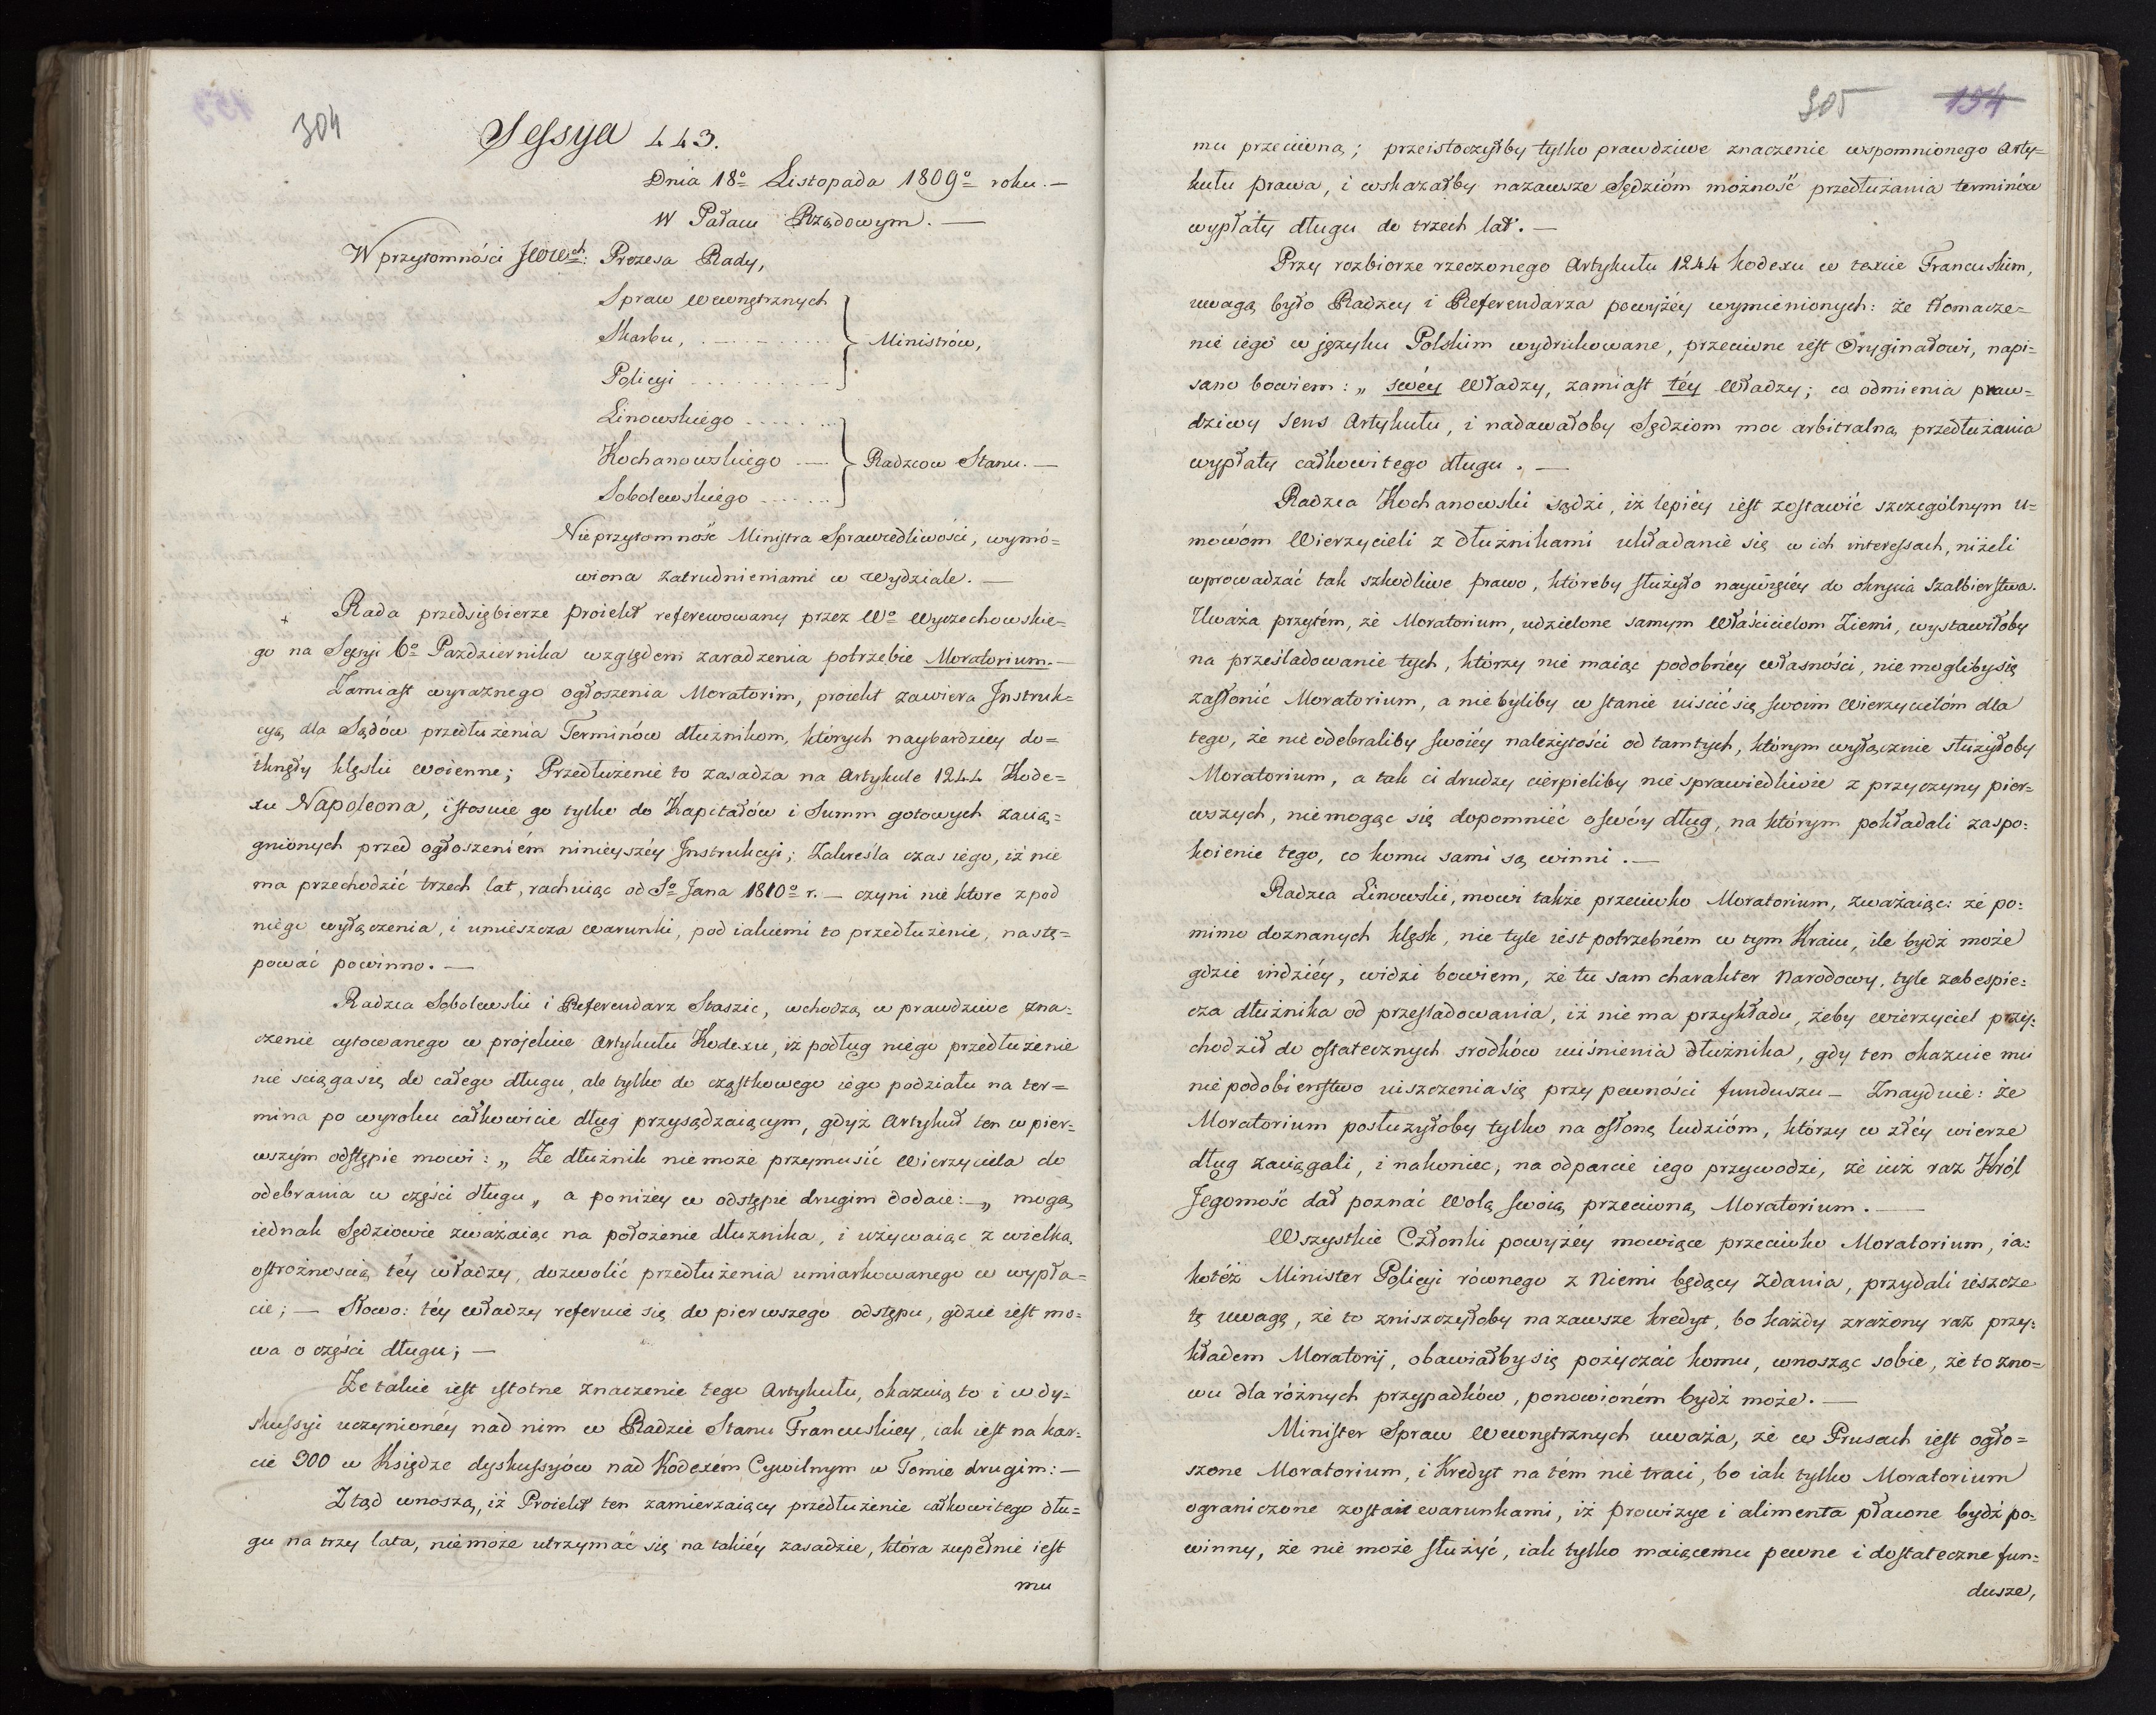 304
Sessya 443.
Dnia 18º Listopada 1809º roku. —
W Pałacu Rządowym. —
W przytomności JWWch: Prezesa Rady,
Spraw Wewnętrznych
Skarbu, . — . . . . . . Ministrów,
Policyi . . . . . . . . .
Linowskiego . . . . . . .
Kochanowskiego . — Radzcow Stanu. —
Sobolewskiego . . . . . .
Nieprzytomność Ministra Sprawiedliwości, wymó=
wiona zatrudnieniami w Wydziale. —
+ Rada przedsiębierze proiekt referowowany przez Wº Wyczechowskie=
go na Sessyi 6º Pazdziernika względem zaradzenia potrzebie Moratorium. —
Zamiast wyraznego ogłoszenia Moratorim, proiekt zawiera Instruk=
cyą dla Sądów przedłużenia Terminów dłużnikom, których naybardziey do=
tknęły klęski woienne; Przedłużenie to zasadza na Artykule 1244 Kode=
xu Napoleona, i stosuie go tylko do Kapitałów i Summ gotowych zacią=
gnionych przed ogłoszeniém ninieyszéy Instrukcyi; Zakreśla czas iego, iż nie
ma przechodzić trzech lat, rachuiąc od Sº Jana 1810º r. — czyni nie ktore z pod
niego wyłączenia, i umieszcza warunki, pod iakiemi to przedłużenie, nastę=
pować powinno. —
Radzca Sobolewski i Referendarz Staszic, wchodzą w prawdziwe zna=
czenie cytowanego w projekcie Artykułu Kodexu, iż podług niego przedłużenie
nie sciąga się do całego długu, ale tylko do cząstkowego iego podziału na ter=
mina po wyroku całkowicie dług przysądzaiącym, gdyż Artykuł ten w pier=
wszym odstępie mowi: „ Że dłużnik nie może przymusić Wierzyciela do
odebrania w części długu „ a poniżey w odstępie drugim dodaie: — „ mogą
iednak Sędziowie zważaiąc na położenie dłużnika, i używaiąc z wielką
ostrożnością téy władzy, dozwolić przedłużenia umiarkowanego w wypła=
cie; — Słowo: téy władzy referuie się do pierwszego odstępu, gdzie iest mo=
wa o części długu; —
Że takie iest istotne znaczenie tego Artykułu, okazuią to i w dy=
skussyi uczynionéy nad nim w Radzie Stanu Francuskiey, iak iest na kar=
cie 300 w Księdze dyskussyów nad Kodexém Cywilnym w Tomie drugim: —
Ztąd wnoszą, iż Proiekt ten zamierzaiący przedłużenie całkowitego dłu=
gu na trzy lata, nie może utrzymać się na takiéy zasadzie, która zupełnie iest
mu
305 154
mu przeciwną; przeistoczyłby tylko prawdziwe znaczenie wspomnionego Arty=
kułu prawa, i wskazałby nazawsze Sędzióm możność przedłużania terminów
wypłaty długu do trzech lat. —
Przy rozbiorze rzeczonego Artykułu 1244 kodexu w texcie Francuskim,
uwagą było Radzcy i Referendarza powyżéy wymienionych: że tłomacze=
nie iego w języku Polskim wydrukowane, przeciwne iest Oryginałowi, napi=
sano bowiem: „ swéy Władzy, zamiast téy Władzy; co odmienia praw=
dziwy sens Artykułu, i nadawałoby Sędziom moc arbitralną przedłużania
wypłaty całkowitego długu. —
Radzca Kochanowski sądzi, iż lepiéy iest zostawić szczególnym u=
mowóm Wierzycieli z dłużnikami układanie się w ich interessach, niżeli
wprowadzać tak szkodliwe prawo, któreby służyło naywięcéy do okrycia szalbierstwa.
Uważa przytém, że Moratorium, udzielone samym Właścicielom Ziemi, wystawiłoby
na prześladowanie tych, którzy nie maiąc podobnéy własności, nie moglibysię
zasłonić Moratorium, a nie byliby w stanie uiścić się swoim Wierzycielóm dla
tego, że nie odebraliby swoiéy należytości od tamtych, którym wyłącznie służyłoby
Moratorium, a tak ci drudzy cierpieliby nie sprawiedliwie z przyczyny pier=
wszych, nie mogąc się dopomnieć o swóy dług, na którym pokładali zaspo=
koienie tego, co komu sami są winni. —
Radzca Linowski, mowi także przeciwko Moratorium, zważaiąc: że po=
mimo doznanych klęsk, nie tyle iest potrzebném w tym Kraiu, ile bydź może
gdzie indziéy, widzi bowiem, że tu sam charakter Narodowy, tyle zabespie=
cza dłużnika od prześladowania, iż nie ma przykładu, żeby wierzyciel przy=
chodził do ostatecznych srodków uciśnienia dłużnika, gdy ten okazuie mu
niepodobieństwo uiszczenia się przy pewności funduszu — Znayduie: że
Moratorium posłużyłoby tylko na osłonę ludzióm, którzy w złéy wierze
dług zaciągali, i nakoniec, na odparcie iego przywodzi, że iuż raz Król
Jegomość dał poznać Wolą swoią przeciwną Moratorium. —
Wszystkie Członki powyżéy mowiące przeciwko Moratorium, ia=
kotéż Minister Policyi równego z niemi będący zdania, przydali ieszcze
tę uwagę, że to zniszczyłoby na zawsze kredyt, bo każdy zrażony raz przy=
kładem Moratorij, obawiałby się pożyczać komu, wnosząc sobie, że to zno=
wu dla różnych przypadków, ponowioném bydź może. —
Minister Spraw Wewnętrznych uważa, że w Prusach iest ogło=
szone Moratorium, i Kredyt na tém nie traci, bo iak tylko Moratorium
ograniczone zostaie warunkami, iż prowizye i alimenta płacone bydź po=
winny, że nie może służyć, iak tylko maiącemu pewne i dostateczne fun=
dusze,